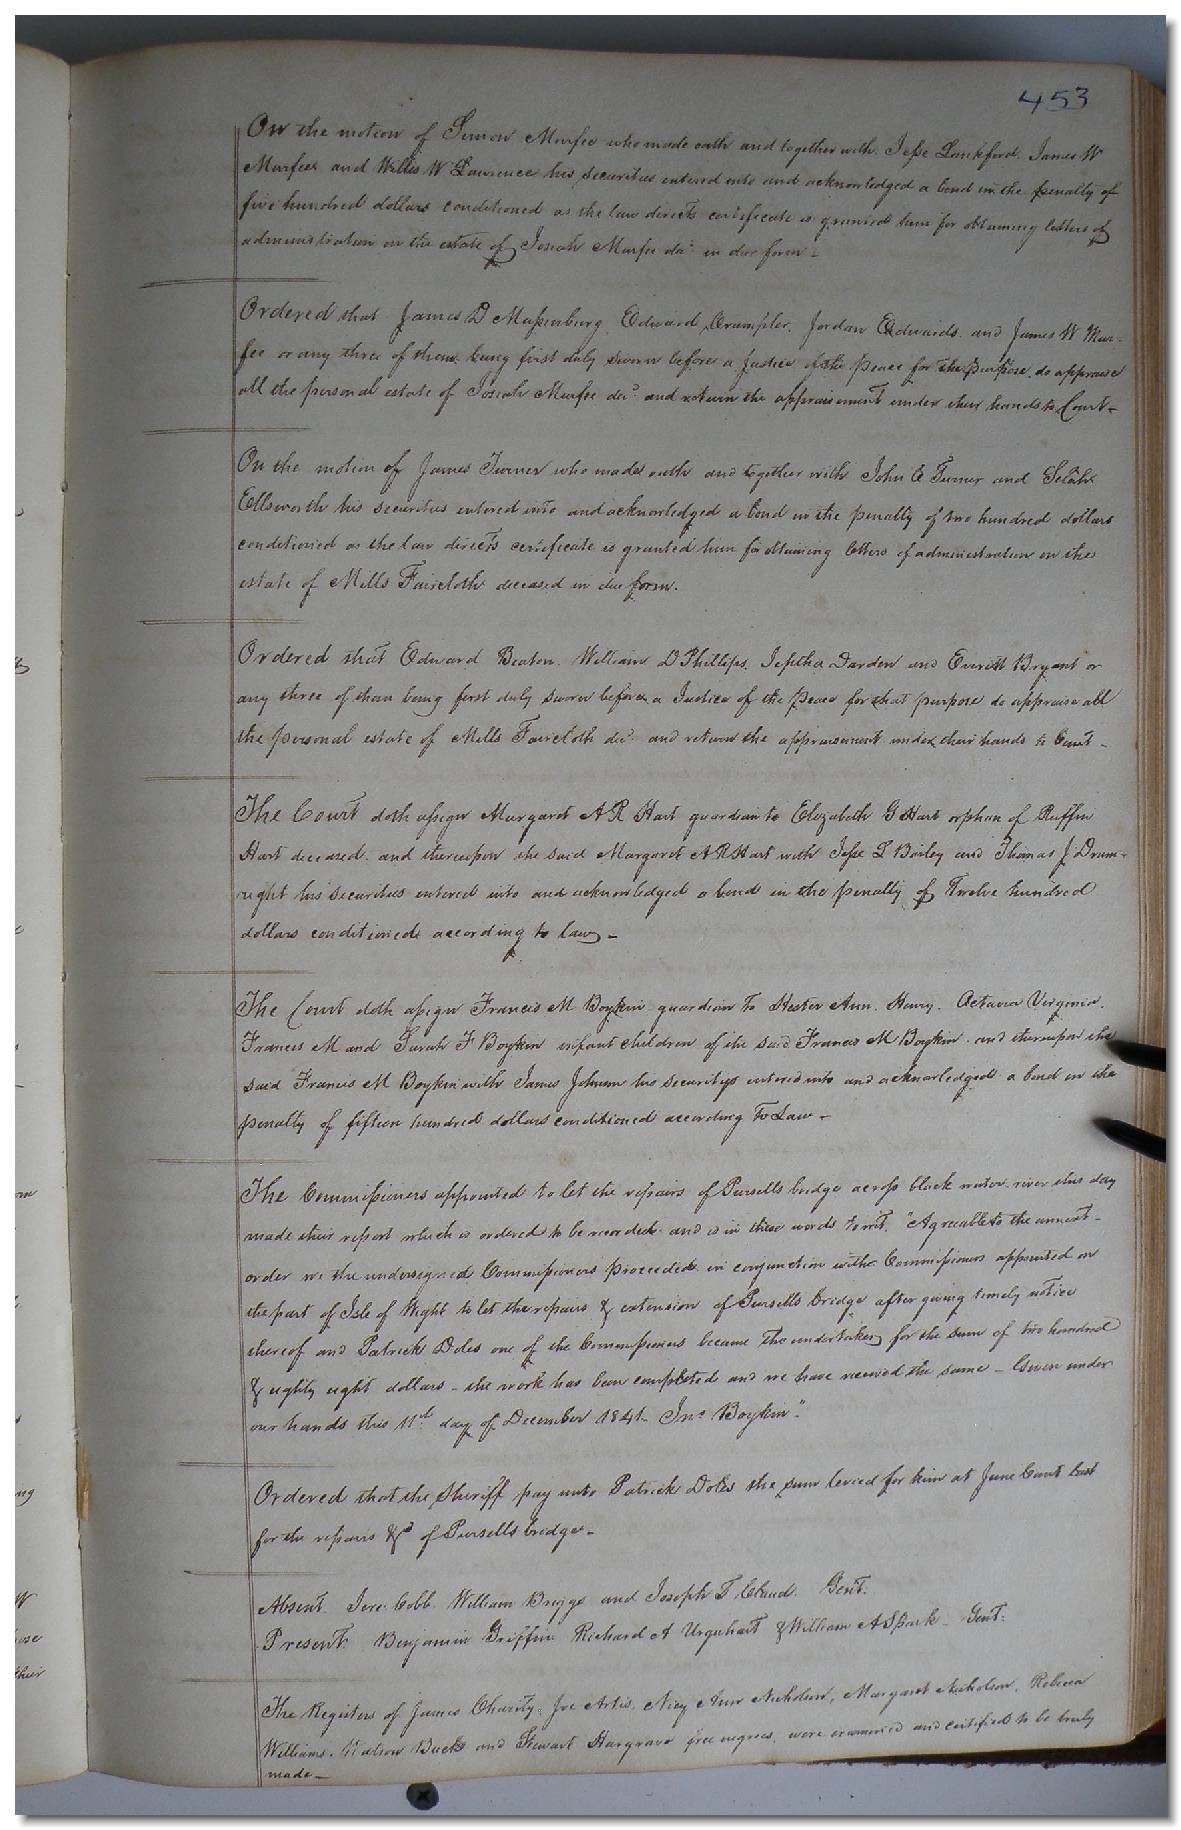 453
On the motion of Simon Murfee who made oath and together with Jesse Lankford, James W
Murfee and Willis W Lawrence his securities entered into and acknowledged a bond in the penalty of
five hundred dollars conditioned as the law directs certificate is granted him for obtaining letters of
administration on the estate of Josiah Murfee dec'd in due form -
Ordered that James D Massenburg, Edward Crumpler, Jordan Edwards, and James W Mur-
fee or any three of them being first duly sworn before a Justice of the peace for the purpose, do appraise
all the personal estate of Josiah Murfee dec'd and return the appraisement under their hands to Court -
On the motion of James Turner who made oath and together with John E Turner and Selah
Ellsworth his securities entered into and acknowledged a bond in the penalty of two hundred dollars
conditioned as the law directs certificate is granted him for obtaining letters of administration on the
estate of Mills Faircloth deceased in due form.
Ordered that Edward Beaton, William D Phillips, Jeptha Darden and Everett Bryant or
any three of them being first duly sworn before a Justice of the Peace for that purpose do appraise all
the personal estate of Mills Faircloth dec'd and return the appraisement under their hands to Court -
The Court doth assign Margaret A R Hart guardian to Elizabeth G Hart orphan of Ruffin
Hart deceased. and thereupon the said Margaret A R Hart with Jesse L Bailey and Thomas J Drum-
right his securities entered into and acknowledged a bond in the penalty of Twelve hundred
dollars conditioned according to law -
The Court doth assign Francis M Boykin guardian to Hester Ann, Henry, Octavia Virginia,
Frances M and Sarah F Boykin infant children of the said Francis M Boykin and thereupon the
said Francis M Boykin with James Johnson his security entered into and acknowledged a bond in the
penalty of fifteen hundred dollars conditioned according to Law -
The Commissioners appointed to let the repairs of Pursells bridge across black water river this day
made their report which is ordered to be recorded and is in these words towit. "Agreeable to the annext
order we the undersigned Commissioners proceeded in conjunction with Commissioners appointed on
the part of Isle of Wight to let the repairs & extension of Pursells bridge after giving timely notice
thereof and Patrick Doles one of the Commissioners became the undertaker for the sum of two hundred
& eighty eight dollars - the work has been completed and we have received the same - Given under
our hands this 11th day of December 1841 - Jno Boykin"
Ordered that the Sheriff pay unto Patrick Doles the sum levied for him at June Court last
for the repairs &c of Pursells bridge -
Absent. Jere Cobb William Briggs and Joseph T Claud. Gent.
Present. Benjamin Griffin Richard A Urquhart & William A Spark Gent.
The Registers of James Charity, Joe Artis, Nicy Ann Nicholson, Margaret Nicholson, Rebecca
Williams, Watson Buck and Stewart Hargrave free negroes, were examined and certified to be truly
made -